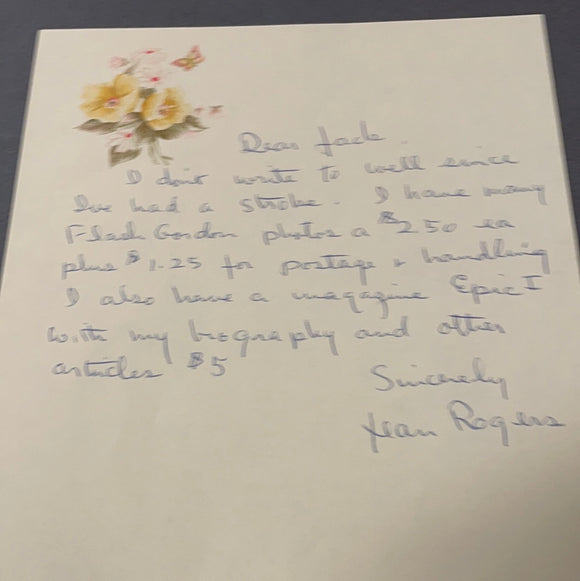 Dear Jack
I don't write to well since
I've had a stroke. I have many
Flash Gordon photos a $2.50 ea
plus $1.25 for postage & handling
I also have a magazine Epic I
with my biography and other
articles $5
Sincerely
Jean Rogers